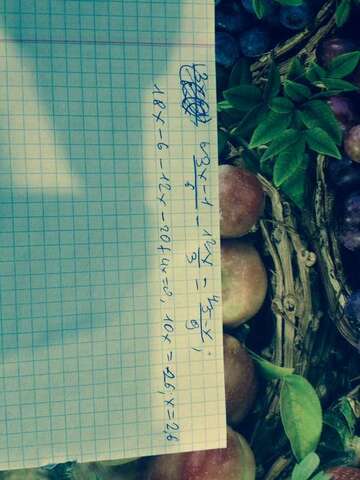 3x-1 - 12x = 5-x;
18x - 6 - 12x - 20 + 4x = 0, 10x = 26, x = 2,6